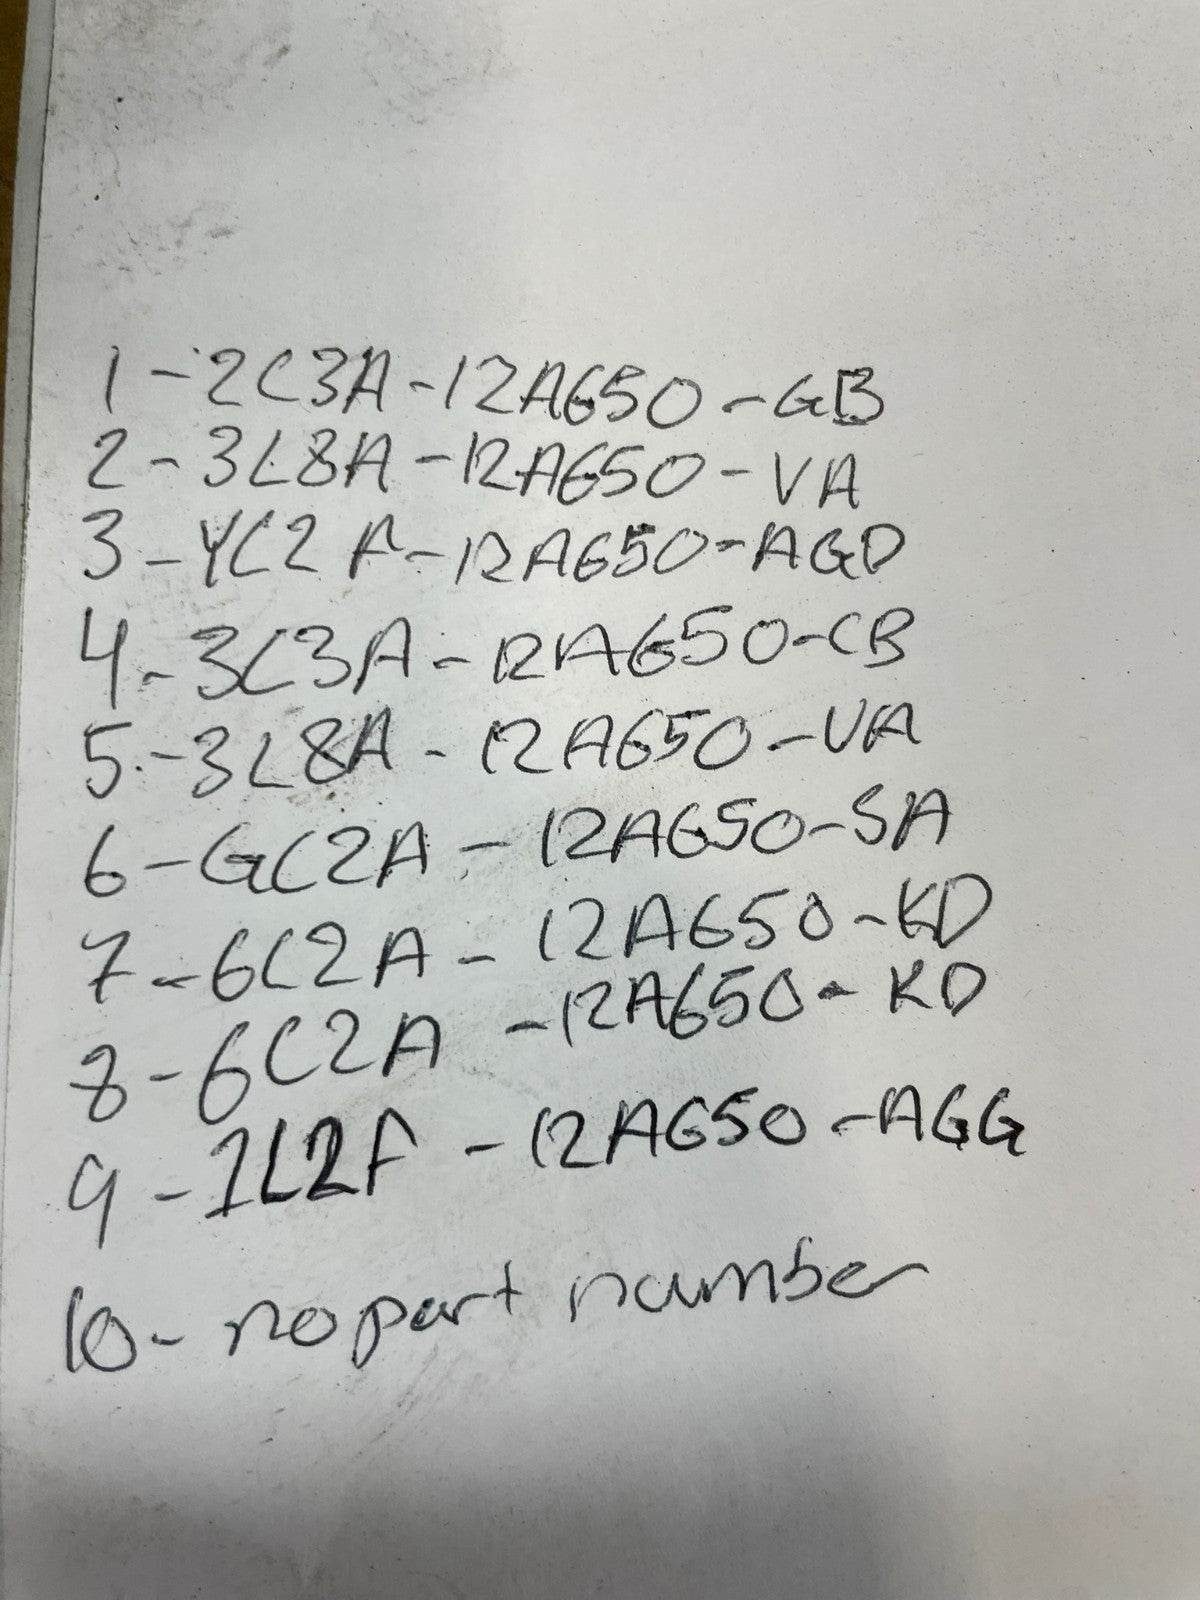 1-2C3A-12A650-GB
2-3L8A-12A650-VA
3-YC2F-12A650-AGD
4-3C3A-12A650-CB
5-3L8A-12A650-VA
6-GC2A-12A650-SA
7-6C2A-12A650-KD
8-6C2A-12A650-KD
9-1L2F-12A650-AGG
10-no part number